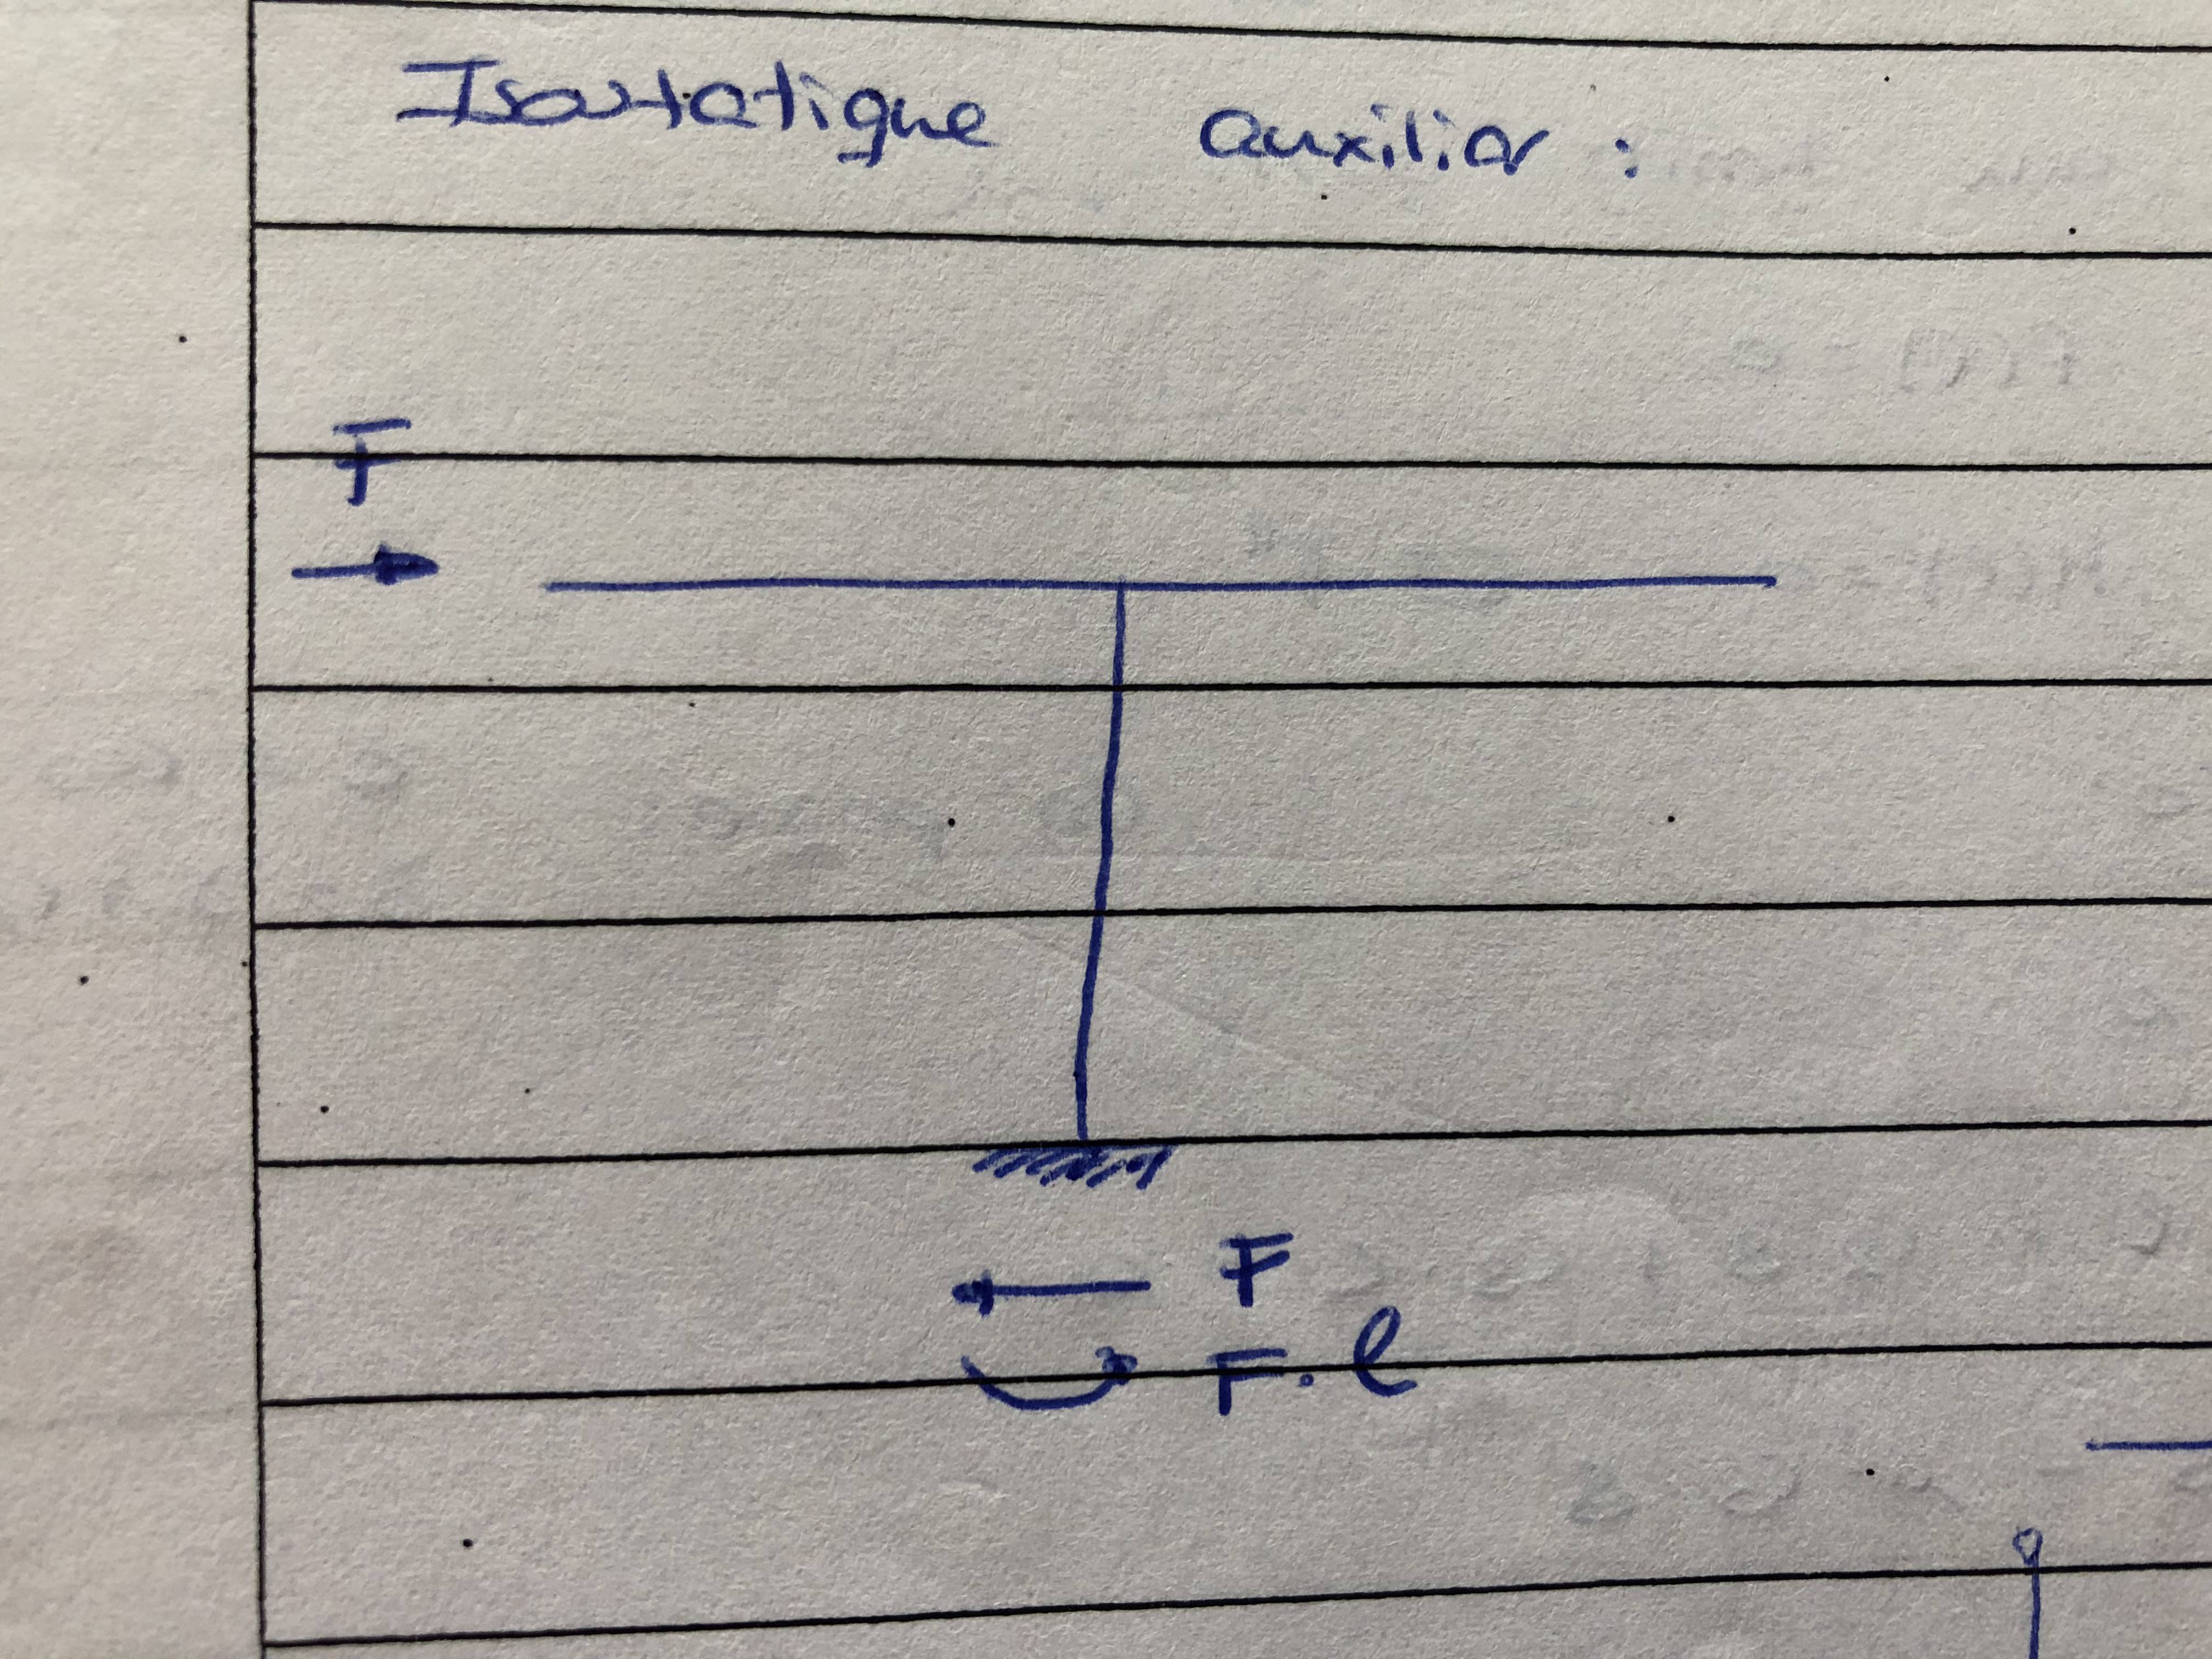 Isostatique auxiliar :
F
F
F.l